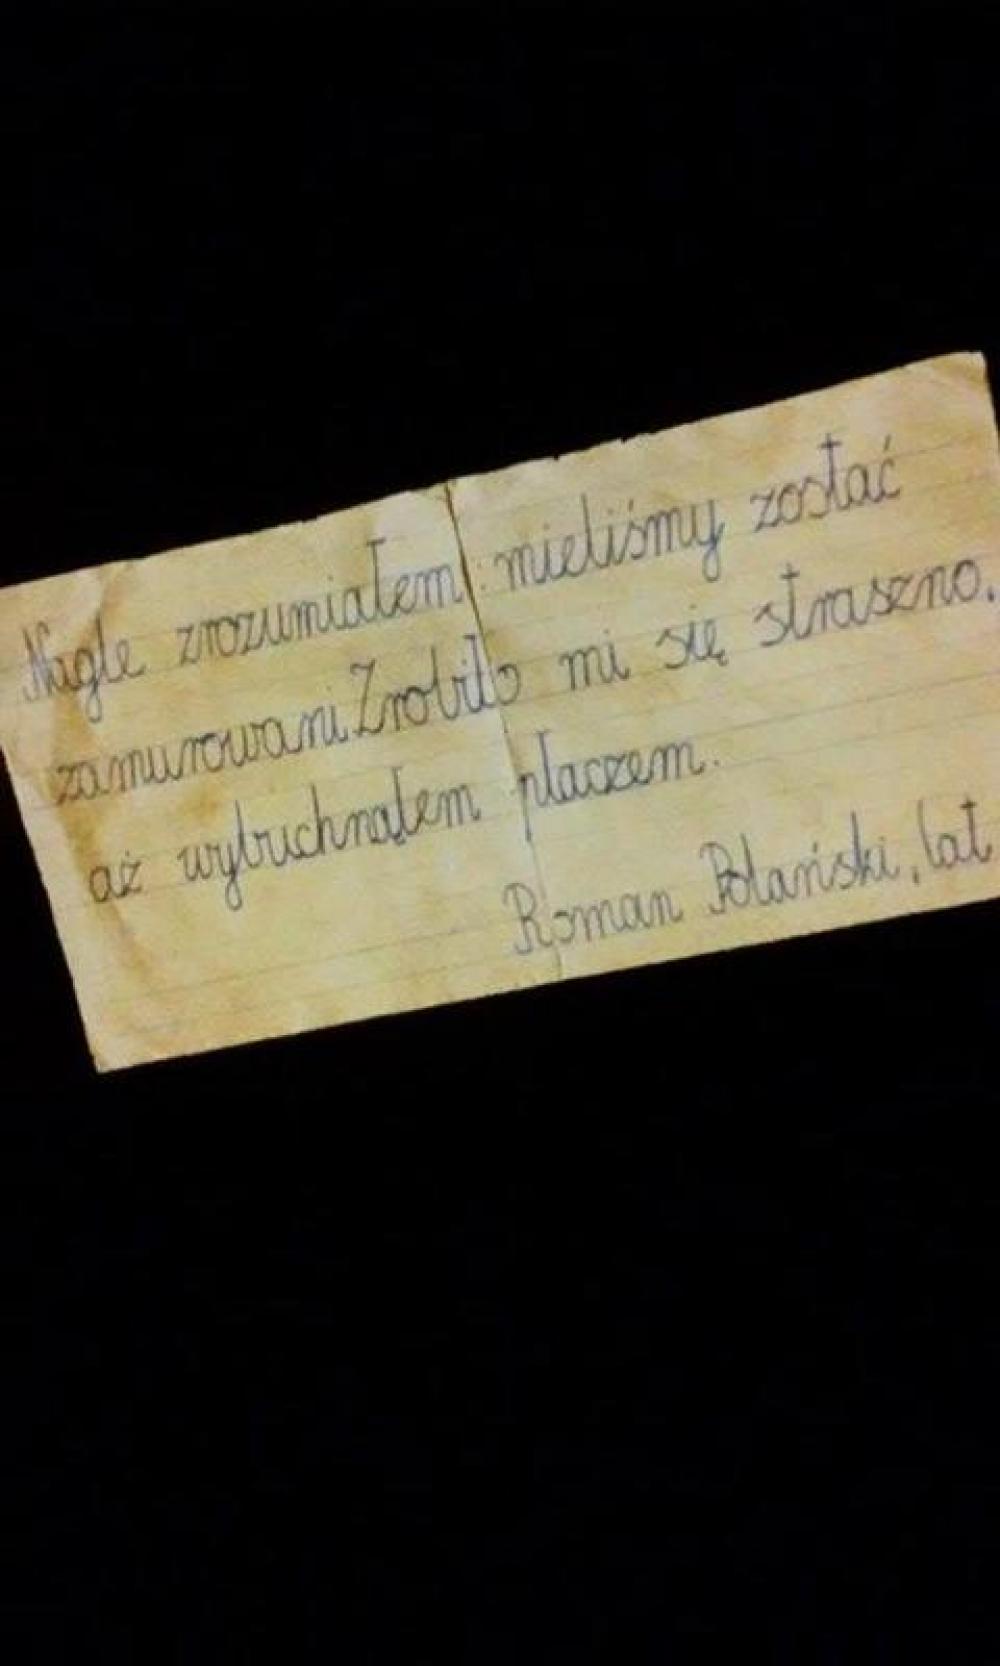 Nagle zrozumiałem: mieliśmy zostać
zamurowani Zrobiło mi się straszno,
aż wybuchnąłem płaczem.
Roman Polański, lat